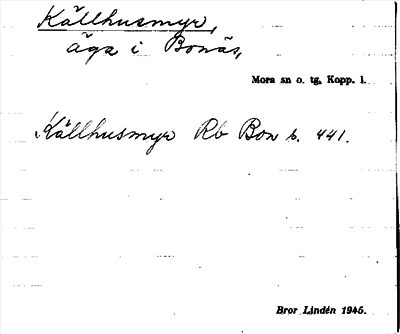 Källhusmyr,
äga i Bonäs,
Mora sn o. tg, Kopp. l.
Källhusmyr Rb Bon b. 441.
Bror Lindén 1945.